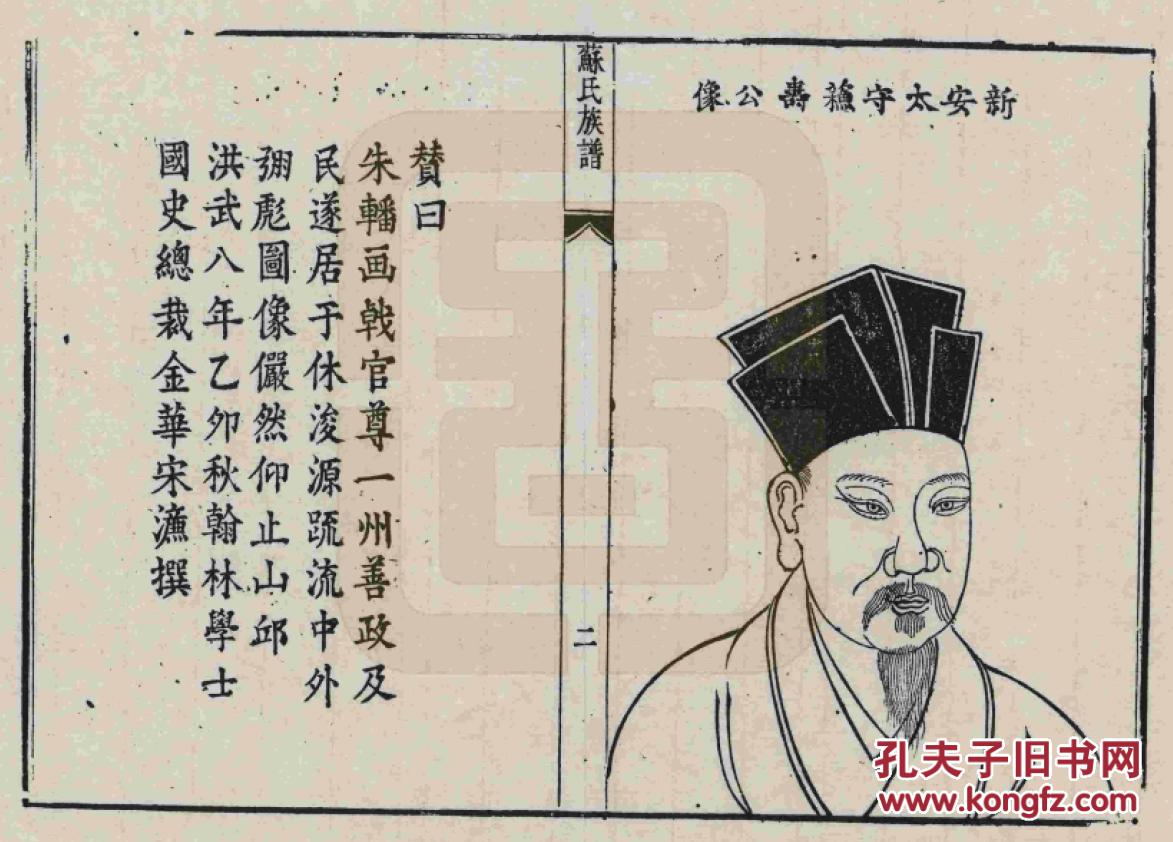 新安太守蘓壽公像
蘇氏族譜
二
賛曰
朱轓画戟官尊一州善政及
民遂居于休浚源䟽流中外
弸彪圖像儼然仰止山邱
洪武八年乙卯秋翰林學士
國史總裁金華宋濂撰
孔夫子旧书网
www.kongfz.com